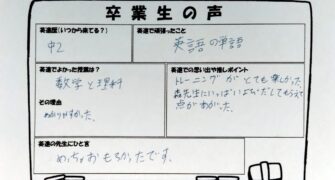 卒業生の声
英進歴(いつから来てる?)
中2
英進で頑張ったこと
英語の単語
英進でよかった授業は?
数学と理科
その理由
わかりやすかった。
英進での思い出や推しポイント
トレーニングがとても楽しかった。
森先生にいっぱい
してもらえて
点があがった。
英進の先生にひと言
めっちゃおもろかったです。